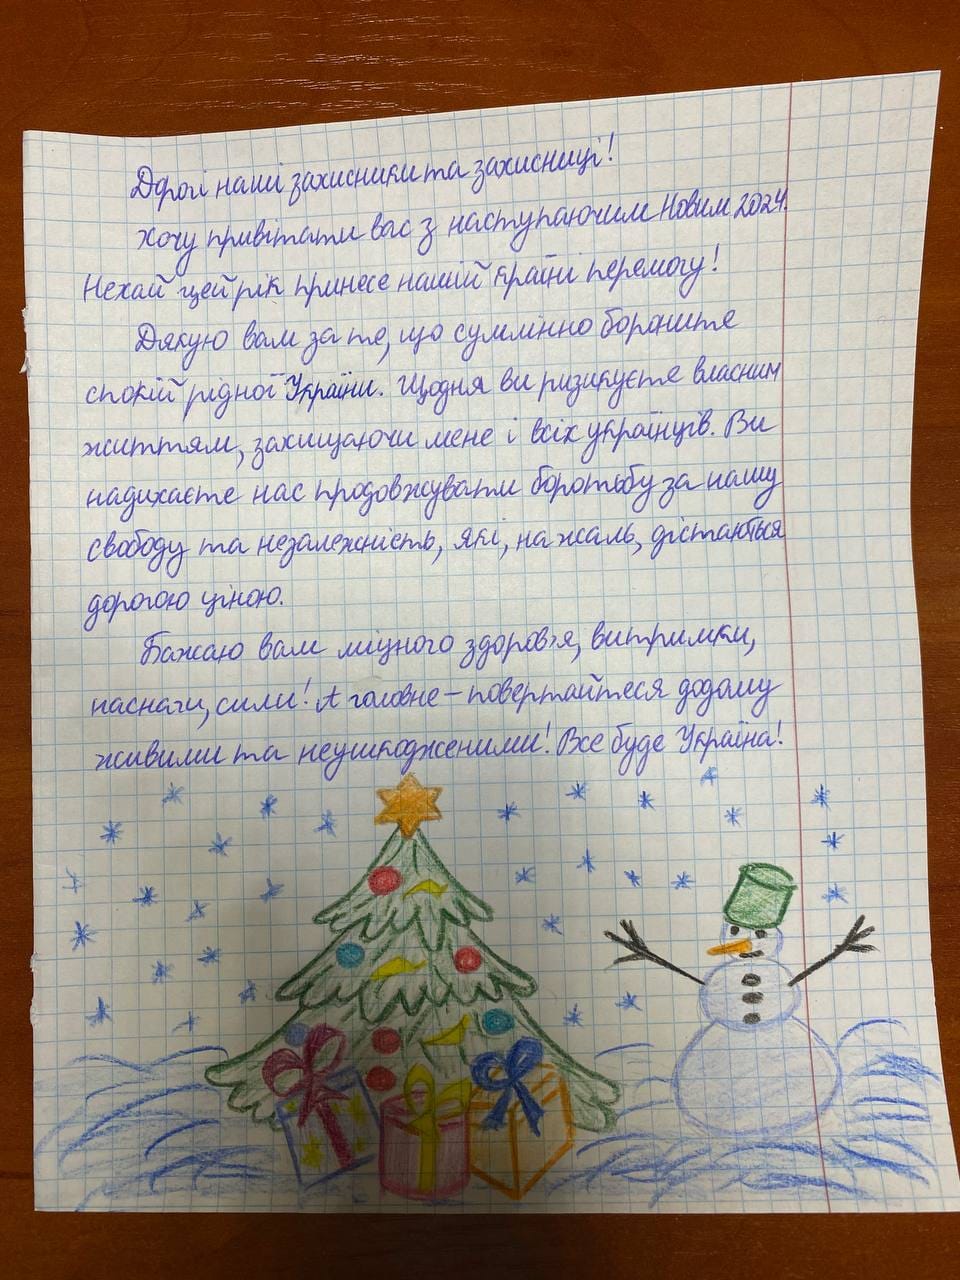 Дорогі наші захисники та захисниці!
Хочу привітати вас з наступаючим Новим 2024.
Нехай цей рік принесе нашій країні перемогу!
Дякую вам за те, що сумлінно бороните
спокій рідної України. Щодня ви ризикуєте власним
життям, захищаючи мене і всіх українців. Ви
надихаєте нас продовжувати боротьбу за нашу
свободу та незалежність, які, на жаль, дістаються
дорогою ціною.
Бажаю вам міцного здоров'я, витримки,
наснаги, сили! А головне – повертайтеся додому
живими та неушкодженими! Все буде Україна!